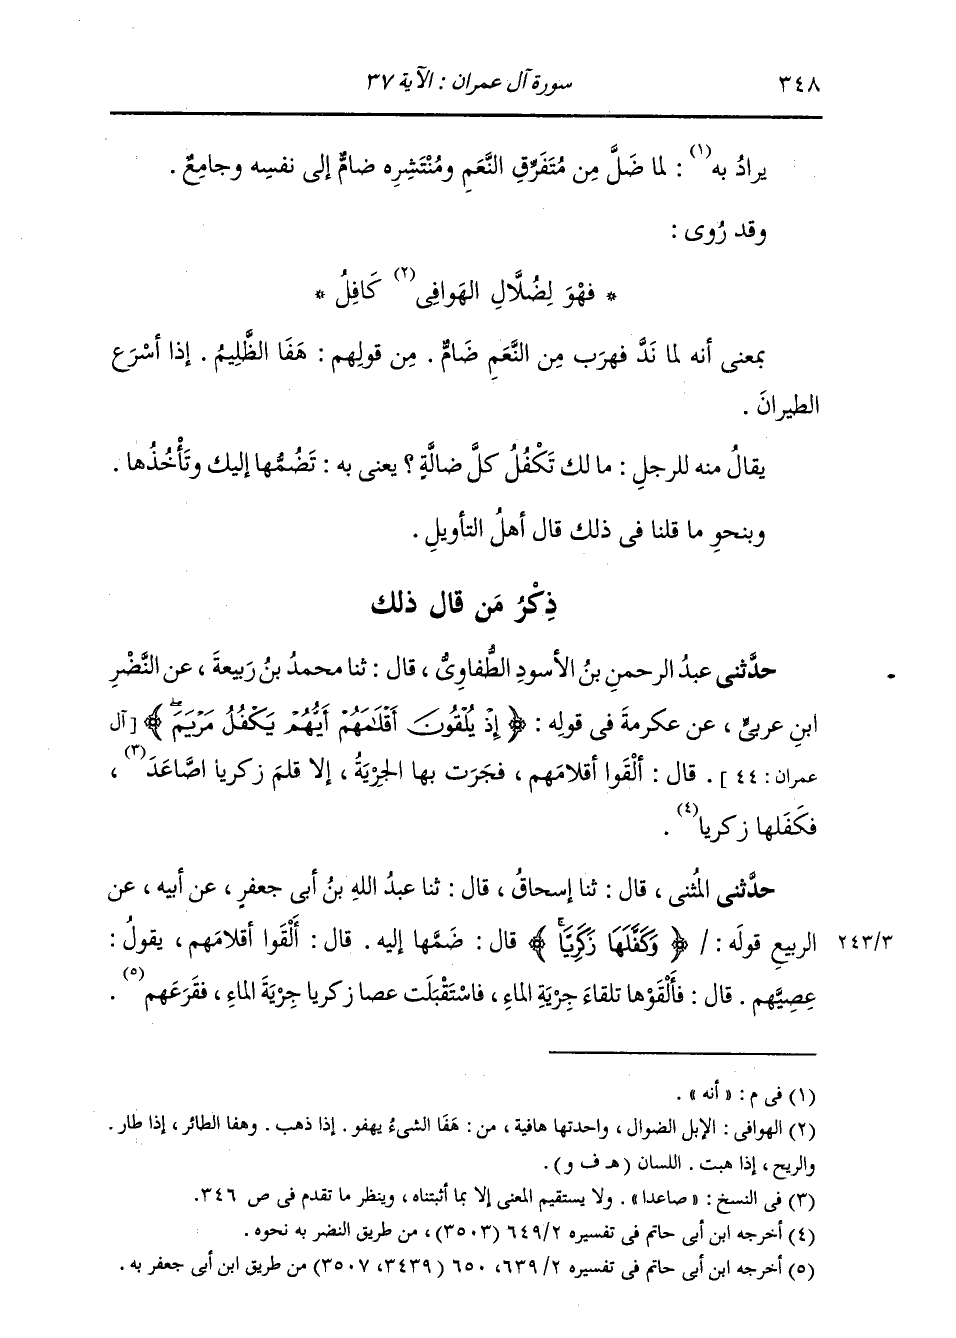 ٣٤٨ سورة آل عمران : الآية ٣٧
يرادُ به(١) : لما ضَلَّ مِن مُتَفَرِّقِ النَّعَمِ ومُنْتَشِرِه ضامٌّ إلى نفسِه وجامِعٌ .
وقد رُوِى :
* فهْوَ لِضُلَّالِ الهَوافِى(٢) كَافِلُ *
بمعنى أنه لما نَدَّ فهرَب مِن النَّعَمِ ضَامٌّ . مِن قولِهم : هَفَا الظَّلِيمُ . إذا أسْرَع
الطيرانَ .
يقالُ منه للرجلِ : ما لك تَكْفُلُ كلَّ ضالَّةٍ ؟ يعنى به : تَضُمُّها إليك وتَأْخُذُها .
وبنحوِ ما قلنا فى ذلك قال أهلُ التأويلِ .
ذِكْرُ مَن قال ذلك
حدَّثنى عبدُ الرحمنِ بنُ الأسودِ الطُّفاوِىُّ ، قال : ثنا محمدُ بنُ رَبيعةَ ، عن النَّضْرِ
ابنِ عربىٍّ ، عن عكرمةَ فى قولِه : ﴿ إِذْ يُلْقُونَ أَقْلَٰمَهُمْ أَيُّهُمْ يَكْفُلُ مَرْيَمَ ﴾ [ آل
عمران : ٤٤ ] . قال : ألْقَوا أقلامَهم ، فجَرَت بها الجِرْيَةُ ، إلا قلمَ زكريا اصَّاعَدَ(٣) ،
فكَفَلها زكريا(٤) .
حدَّثنى المُثنى ، قال : ثنا إسحاقُ ، قال : ثنا عبدُ اللهِ بنُ أبى جعفرٍ ، عن أبيه ، عن
٢٤٣/٣ الربيعِ قولَه : / ﴿ وَكَفَّلَهَا زَكَرِيَّا ﴾ قال : ضَمَّها إليه. قال : أَلْقَوا أقلامَهم ، يقولُ :
عِصِيَّهم . قال : فأَلْقَوْها تلقاءَ جِرْيَةِ الماءِ ، فاسْتَقْبَلَت عصا زكريا جِرْيَةَ الماءِ ، فقرَعَهم(٥) .
(١) فى م : « أنه » .
(٢) الهوافى : الإبل الضوال ، واحدتها هافية ، من : هَفَا الشىءُ يهفو . إذا ذهب . وهفا الطائر ، إذا طار .
والريح ، إذا هبت . اللسان ( هـ ف و ) .
(٣) فى النسخ : « صاعدا » . ولا يستقيم المعنى إلا بما أثبتناه ، وينظر ما تقدم فى ص ٣٤٦.
(٤) أخرجه ابن أبى حاتم فى تفسيره ٦٤٩/٢ (٣٥٠٣) ، من طريق النضر به نحوه .
(٥) أخرجه ابن أبى حاتم فى تفسيره ٦٣٩/٢، ٦٥٠ ( ٣٤٣٩، ٣٥٠٧) من طريق ابن أبى جعفر به .